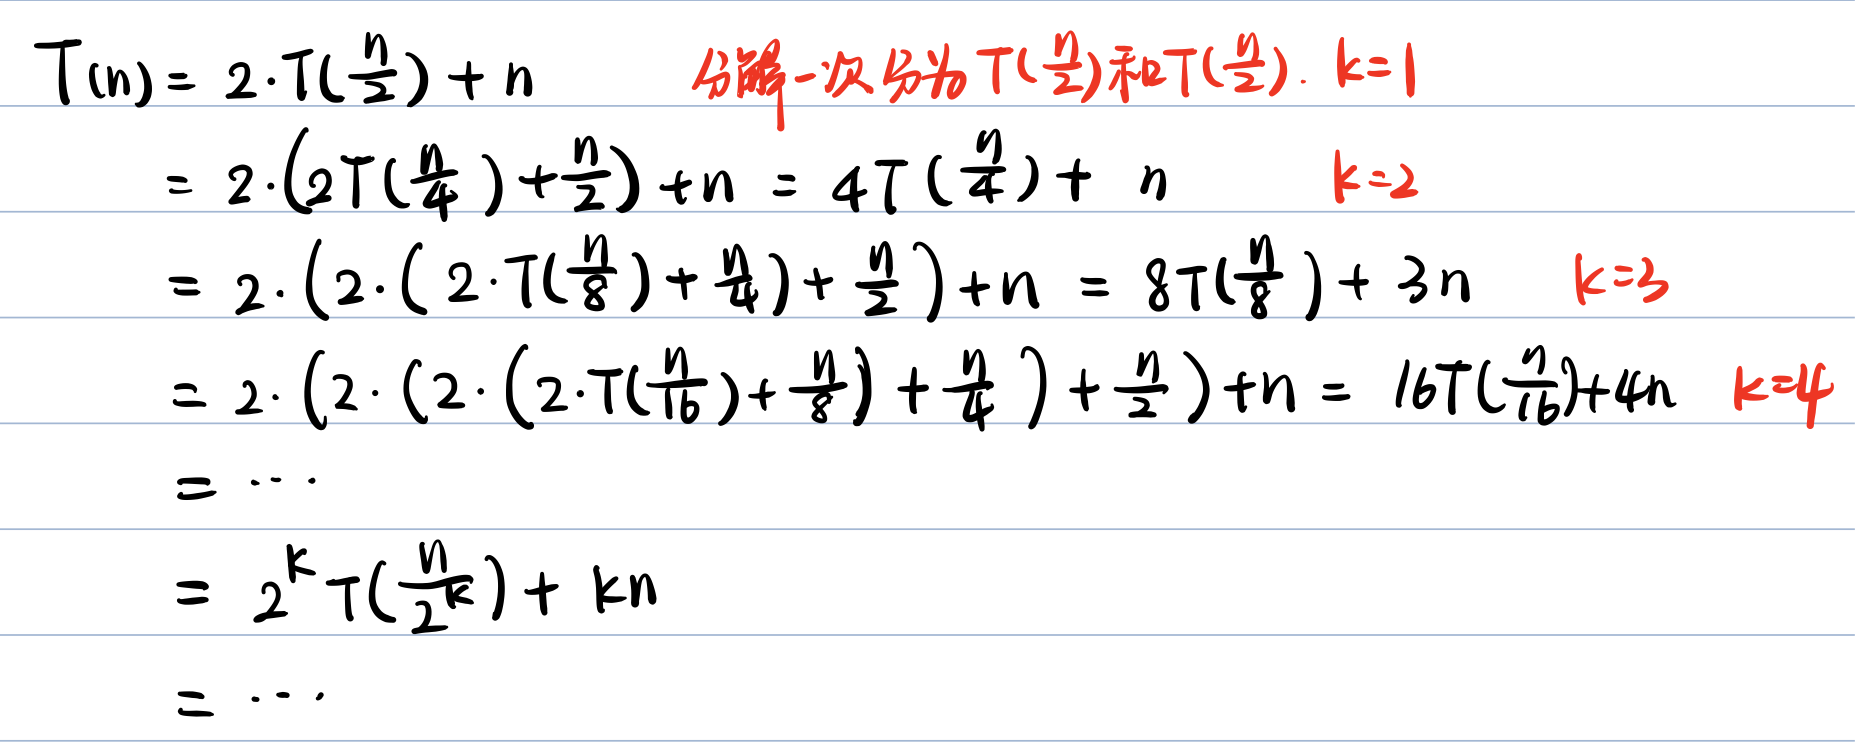 T(n) = 2·T(n/2) + n 分解一次分为 T(n/2) 和 T(n/2). k=1
= 2·(2T(n/4) + n/2) + n = 4T(n/4) + n k=2
= 2·(2·(2·T(n/8) + n/4) + n/2) + n = 8T(n/8) + 3n k=3
= 2·(2·(2·(2·T(n/16) + n/8) + n/4) + n/2) + n = 16T(n/16) + 4n k=4
= ···
= 2^k T(n/2^k) + kn
= ···